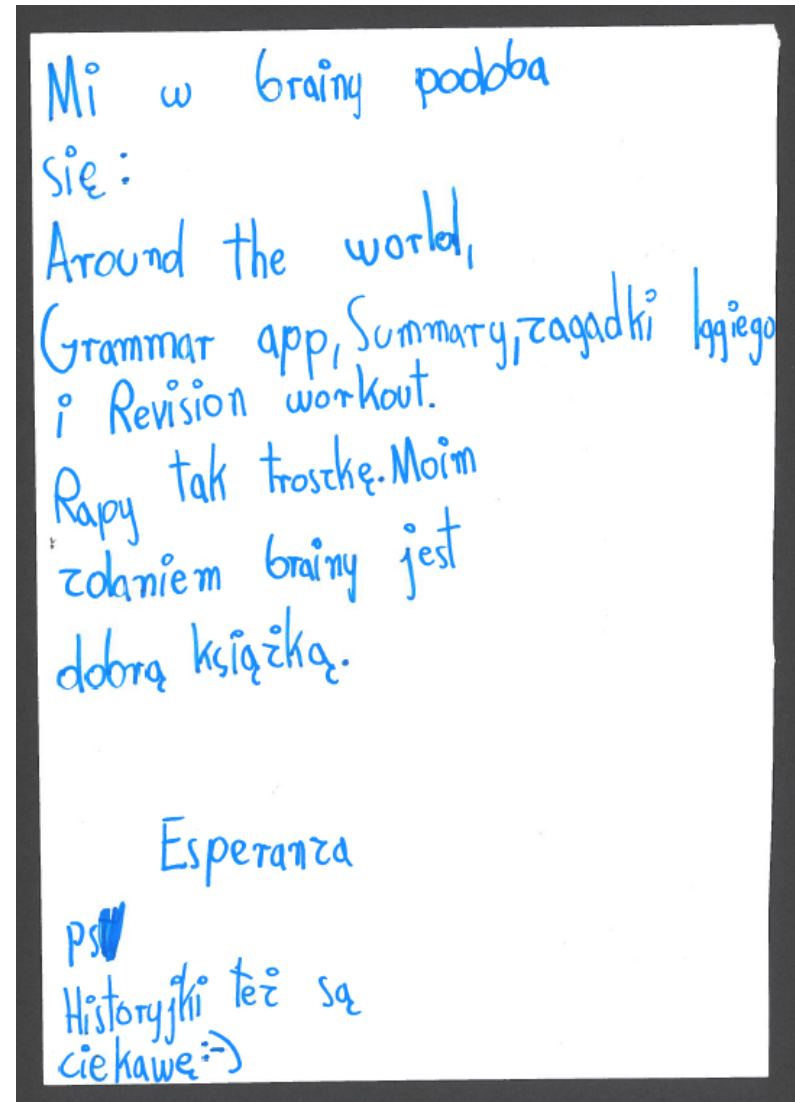 Mi w brainy podoba
się:
Around the world,
Grammar app, Summary, zagadki Iggiego
i Revision workout.
Rapy tak troszkę. Moim
zdaniem brainy jest
dobrą książką.
Esperanza
ps
Historyjki też są
ciekawę :-)